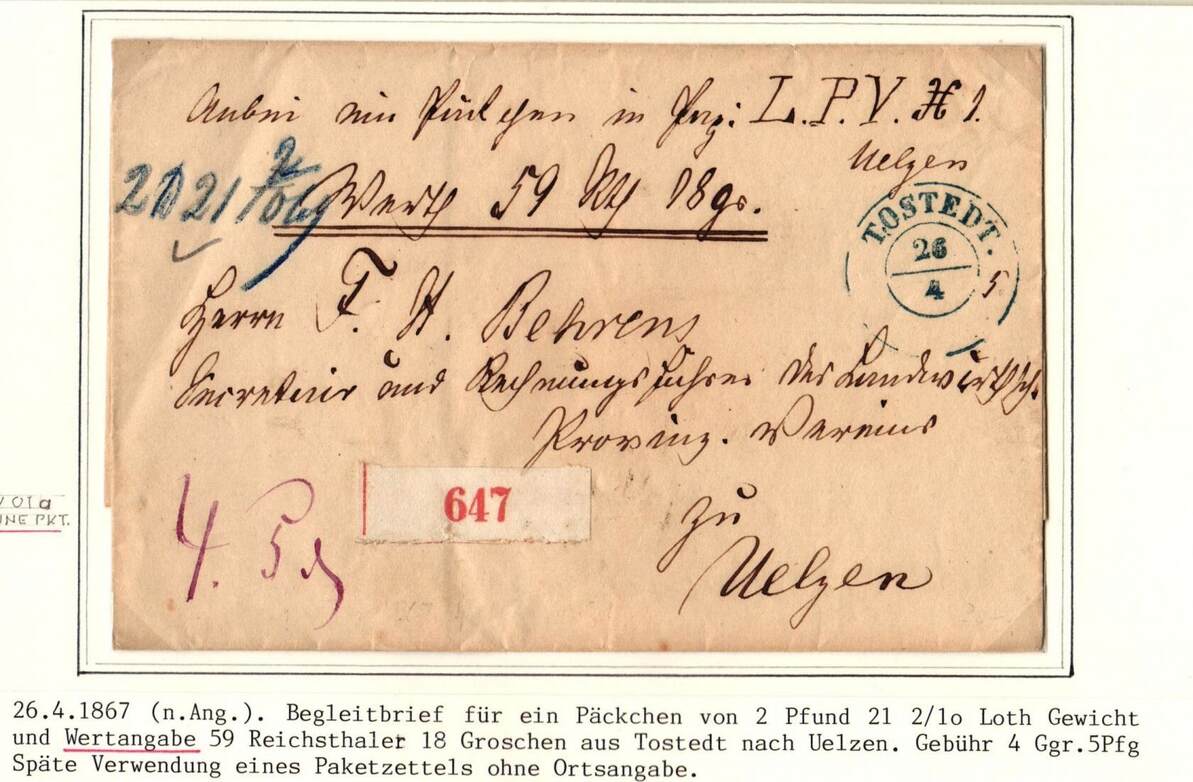 Anbei ein Päckchen in Pag: L. P. V. # 1.
Uelzen
2 21 2/10 Werth 59 Rth 18 gr.
TOSTEDT.
26
4
5
Herrn F. H. Behrens
Secretair und Rechnungsführer des Landwirthsch.
Provinz. Vereins
4. 5
647
zu
Uelzen
NE PKT.
26.4.1867 (n.Ang.). Begleitbrief für ein Päckchen von 2 Pfund 21 2/1o Loth Gewicht
und Wertangabe 59 Reichsthaler 18 Groschen aus Tostedt nach Uelzen. Gebühr 4 Ggr.5Pfg
Späte Verwendung eines Paketzettels ohne Ortsangabe.